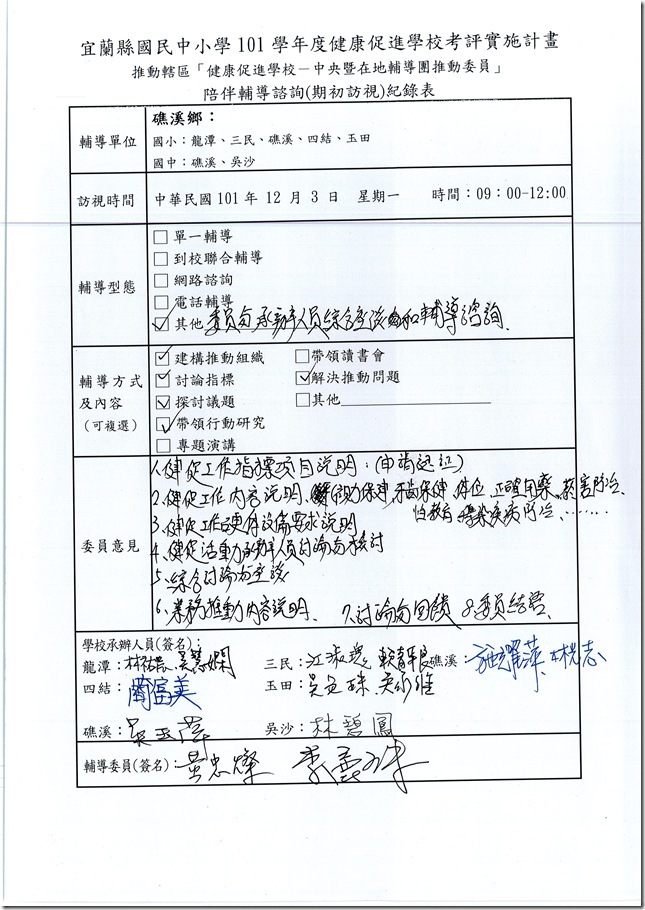 宜蘭縣國民中小學101學年度健康促進學校考評實施計畫
推動轄區「健康促進學校－中央暨在地輔導團推動委員」
陪伴輔導諮詢(期初訪視)紀錄表
輔導單位
礁溪鄉：
國小：龍潭、三民、礁溪、四結、玉田
國中：礁溪、吳沙
訪視時間
中華民國101年 12月 3 日 星期一 時間：09：00-12:00
輔導型態
□ 單一輔導
□ 到校聯合輔導
□ 網路諮詢
□ 電話輔導
☑ 其他 委員與承辦人員綜合座談和輔導諮詢、
輔導方式
及內容
(可複選)
☑ 建構推動組織 □帶領讀書會
☑ 討論指標 ☑解決推動問題
☑ 探討議題 □其他
☑ 帶領行動研究
□ 專題演講
委員意見
1、健促工作指標項目說明：(申請認証)
2、健促工作內容說明、視力保健、口腔保健、体位、正確用藥、菸害防治、
性教育、傳染疾病防治、……
3、健促工作硬体設備要求說明
4、健促活動承辦人員討論與檢討
5、綜合討論與座談
6、業務推動內容說明、 7、討論與回饋 8、委員結語、
學校承辦人員(簽名)：
龍潭： 三民： 礁溪：
四結： 玉田：
礁溪： 吳沙：林碧鳳
輔導委員(簽名)：黃忠燦